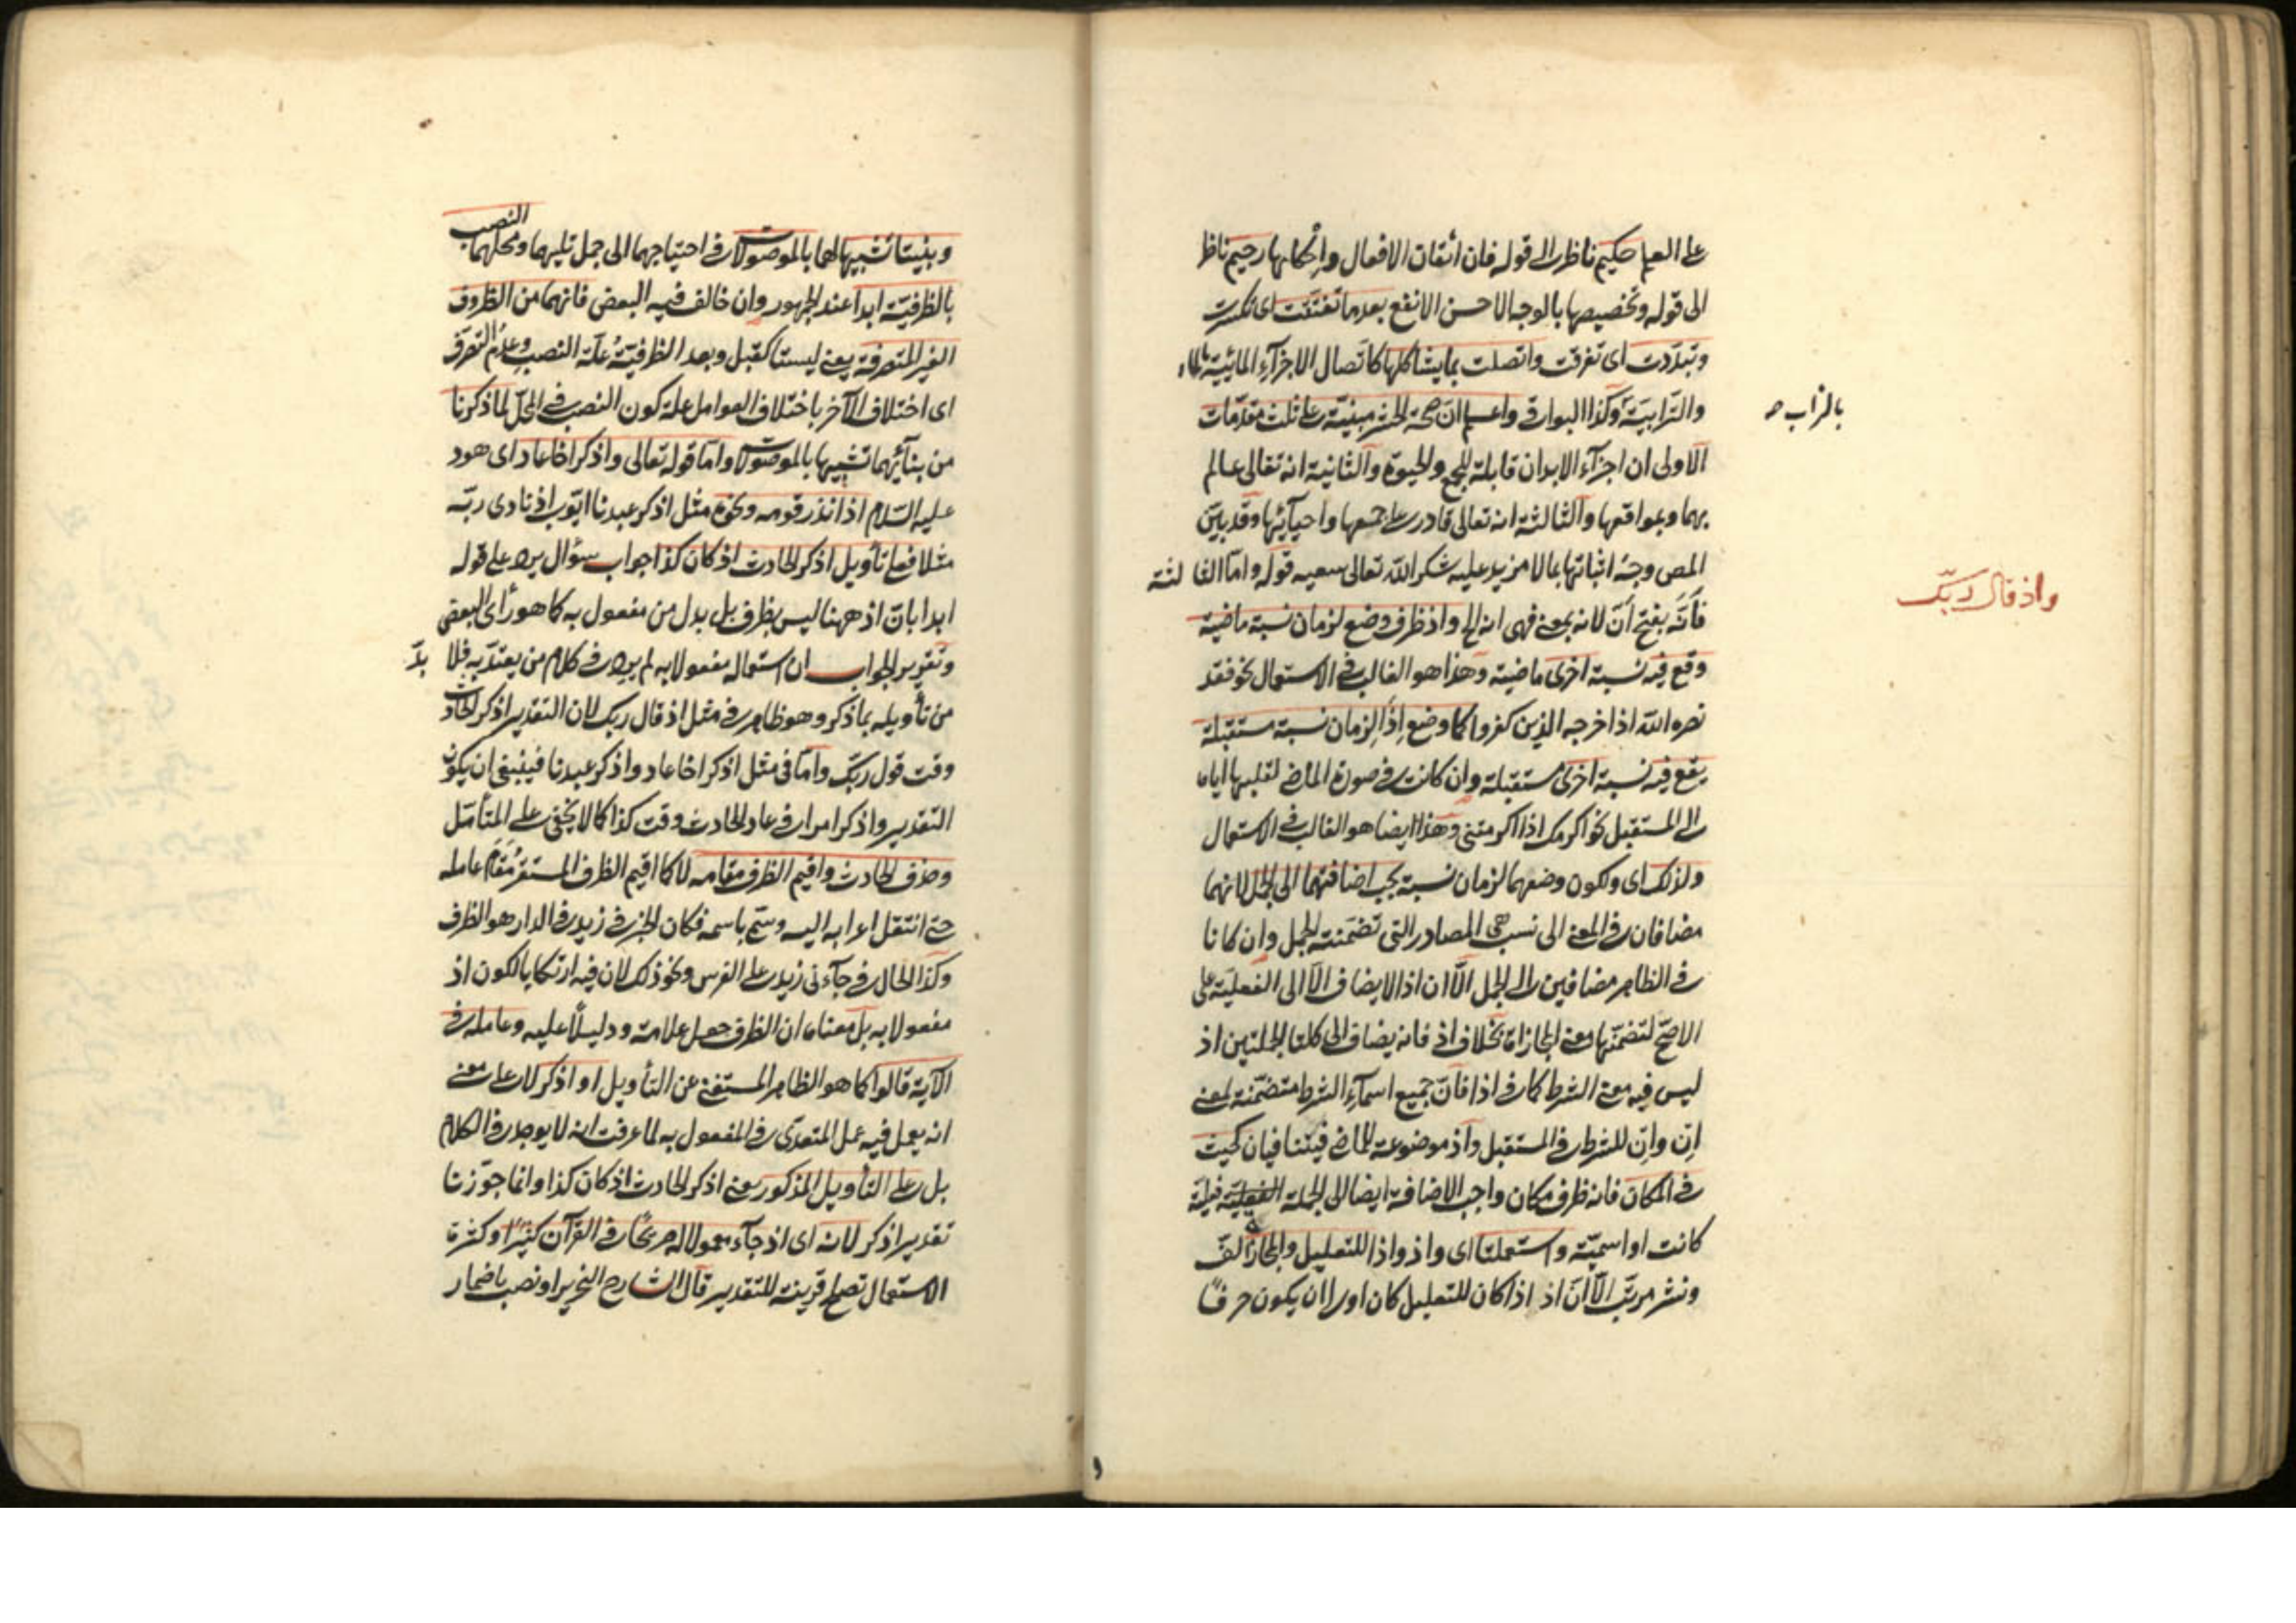 على العليم حكيم ناظر الى قوله فان اتقان الافعال واحكامها رحيم ناظر
الى قوله وتخصيصها بالوجه الاحسن الانفع بعدما تفتتت اى تكسرت
وتبدّدت اى تفرقت واتصلت بما يشاكلها كاتّصال الاجزآء المائيّة بالماء
والتّرابيّة وكذا البواقى واعلم انّ صحة الحشر مبنيّة على ثلث مقدّمات
بالتراب صه
الاولى ان اجزآء الابدان قابلة للجمع والحيوة والثانية انه تعالى عالم
بها وبمواقعها والثالثة انه تعالى قادر على جمعها واحيآئها وقد بيّن
المص وجه اثباتها بما لا مزيد عليه شكر الله تعالى سعيه قوله وامّا الثالثة
واذ قال ربّك
فأنّه بفتح أنّ لانه بمعنى فهى انه الخ واذ ظرف وضع لزمان نسبة ماضية
وقع فيه نسبة اخرى ماضية وهذا هو الغالب فى الاستعمال نحو فقد
نصره الله اذ اخرجه الذين كفروا كما وضع اذا لزمان نسبة مستقبلة
يقع فيه نسبة اخرى مستقبلة وان كانت فى صورة الماضى لقلبها اياه
الى المستقبل نحو اكرمك اذا اكرمتنى وهذا ايضا هو الغالب فى الاستعمال
ولذلك اى ولكون وضعهما لزمان نسبة يجب اضافتهما الى الجمل لانهما
مضافان فى المعنى الى نسب هى المصادر التى تضمنته الجمل وان كانا
فى الظاهر مضافين الى الجمل الّا ان اذا لا يضاف الّا الى الفعليّة على
الاصحّ لتضمنّها معنى المجازاة بخلاف اذ فانه يضاف الى كلتا الجملتين اذ
ليس فيه معنى الشرط كما فى اذا فانّ جميع اسمآء الشرط متضمّنة لمعنى
اِن واِن للشرط فى المستقبل واذ موضوعة للماضى فيتنافيان كحيث
فى المكان فانه ظرف مكان واجب الاضافة ايضا الى الجملة الفعلية فعليّة
كانت او اسميّة واستعملتا اى واذ واذا للتعليل والمجازاة لفّ
ونشر مرتب الّا انّ اذ اذا كان للتعليل كان اولى ان يكون حرفًا
وبنيتا تشبيها لهما بالموصولات فى احتياجهما الى جمل تليهما ومحلهما النصب
بالظرفيّة ابدا عند الجمهور وان خالف فيه البعض فانهما من الظروف
الغير المتصرفة يعنى ليستا كقبل وبعد الظرفيّة علّة النصب وعدم التصرّف
اى اختلاف الآخر باختلاف العوامل علة كون النصب فى المحلّ لما ذكرنا
من بنآئهما تشبيها بالموصولات وامّا قوله تعالى واذكر اخا عاد اى هود
عليه السّلام اذ انذر قومه ونحوه مثل اذكر عبدنا ايّوب اذ نادى ربّه
مثلا فعلى تأويل اذكر الحادث اذ كان كذا جواب سؤال يرد على قوله
ابدا بانّ اذ ههنا ليس بظرف بل بدل من مفعول به كما هو رأى البعض
وتقرير الجواب ان استعماله مفعولا به لم يرد فى كلام من يعتدّ به فلا بدّ
من تأويله بما ذكر وهو ظاهر فى مثل اذ قال ربك لان التقدير اذكر الحادث
وقت قول ربّك وامّا فى مثل اذكر اخا عاد واذكر عبدنا فينبغى ان يكون
التقدير واذكر امر اخى عاد الحادث وقت كذا كما لا يخفى على المتأمّل
وحذف الحادث واقيم الظرف مقامه لا كما اقيم الظرف المستقر مُقَامَ عامله
حتى انتقل اعرابه اليه وسمّى باسمه فكان الخبر فى زيد فى الدار هو الظرف
وكذا الحال فى جآءنى زيد على الفرس ونحو ذلك لان فيه ارتكابا لكون اذ
مفعولا به بل معناه ان الظرف جعل علامة ودليلًا عليه وعامله فى
الآية قالوا كما هو الظاهر المستغنى عن التأويل او اذكر لا على معنى
انه يعمل فيه عمل المتعدّى فى المفعول به لما عرفت انه لا يوجد فى الكلام
بل على التأويل المذكور يعنى اذكر الحادث اذ كان كذا وانما جوّزنا
تقدير اذكر لانه اى اذ جآء معمولا له صريحًا فى القرآن كثيرًا وكثرة
الاستعمال تصلح قرينة للتقدير قال الشارح النحرير او نصب باضمار